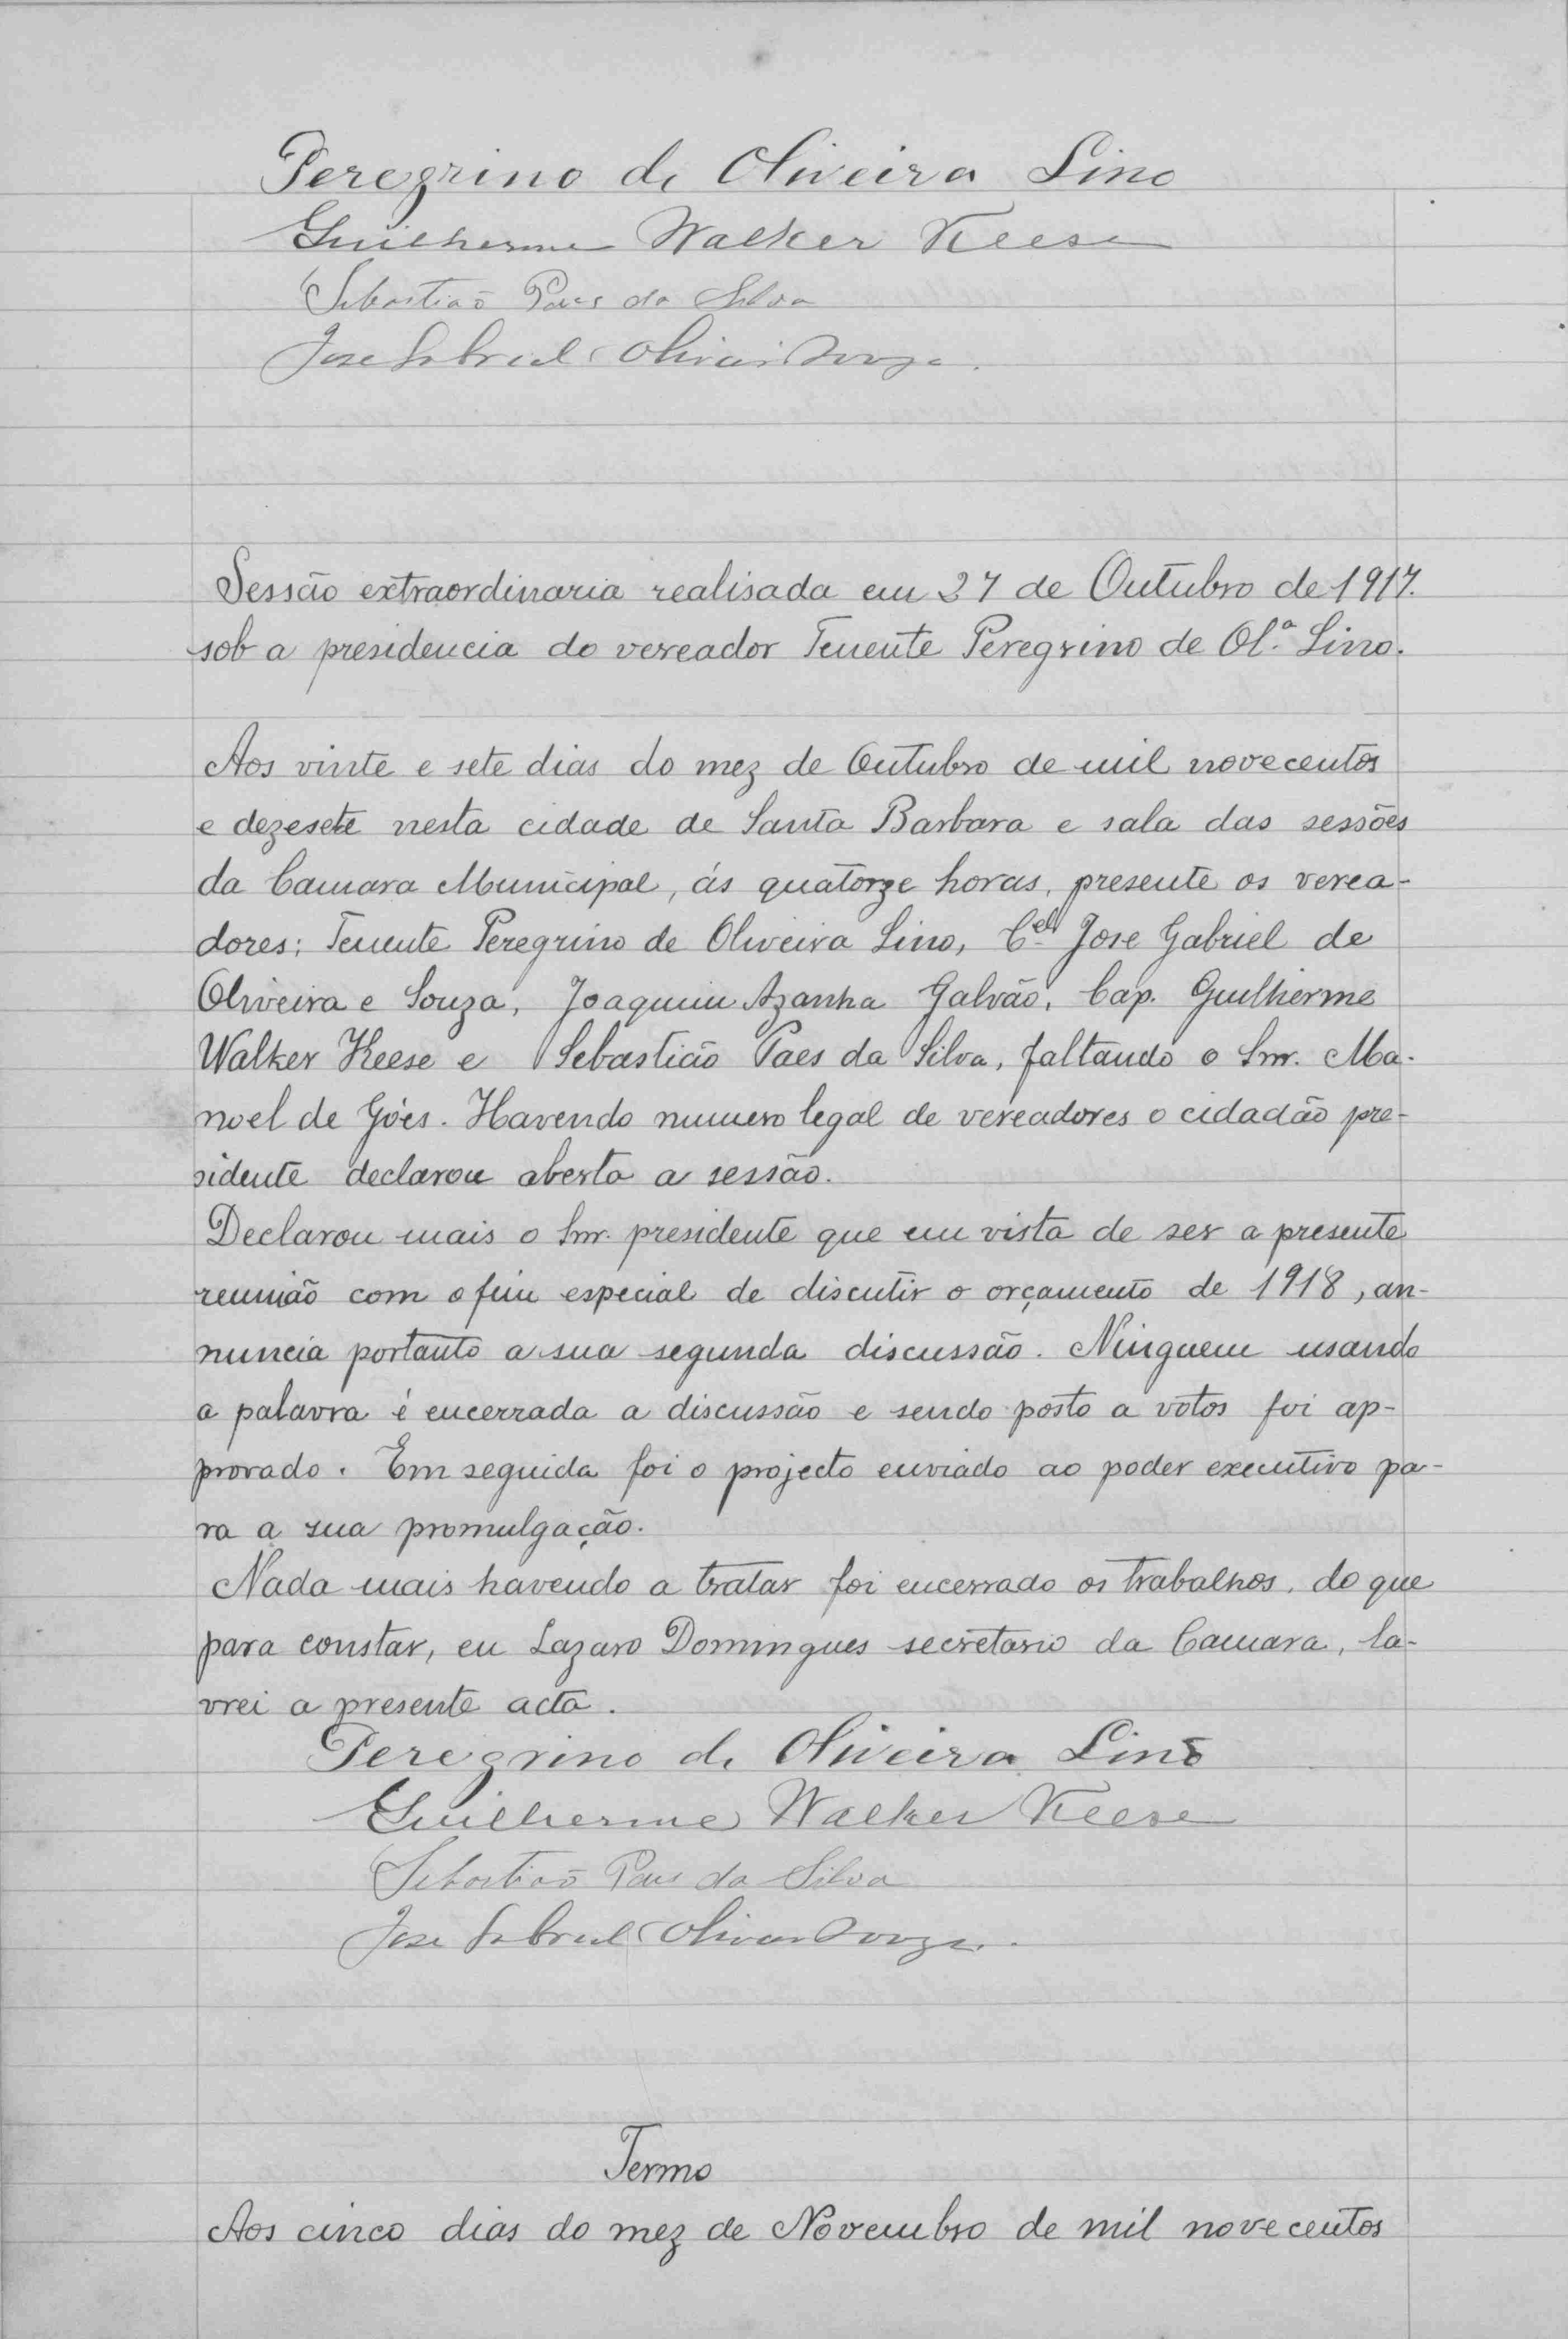 Peregrino de Oliveira Lino
Guilherme Walker Keese
Sebastião Paes da Silva
Jose Gabriel Oliveira Souza.
Sessão extraordinaria realisada em 27 de Outubro de 1917.
sob a presidencia do vereador Tenente Peregrino de Ol.ª Lino.
Aos vinte e sete dias do mez de Outubro de mil novecentos
e dezesete nesta cidade de Santa Barbara e sala das sessões
da Camara Municipal, ás quatorze horas, presente os verea-
dores; Tenente Peregrino de Oliveira Lino, Cel. Jose Gabriel de
Oliveira e Souza, Joaquim Azanha Galvão, Cap. Guilherme
Walker Keese e Sebastião Paes da Silva, faltando o Snr. Ma-
noel de Góes. Havendo numero legal de vereadores o cidadão pre-
sidente declarou aberta a sessão.
Declarou mais o Snr. presidente que em vista de ser a presente
reunião com o fim especial de discutir o orçamento de 1918, an-
nuncia portanto a sua segunda discussão. Ninguem usando
a palavra é encerrada a discussão e sendo posto a votos foi ap-
provado. Em seguida foi o projecto enviado ao poder executivo pa-
ra a sua promulgação.
Nada mais havendo a tratar foi encerrado os trabalhos, do que
para constar, eu Lazaro Domingues secretario da Camara, la-
vrei a presente acta.
Peregrino de Oliveira Lino
Guilherme Walker Keese
Sebastião Paes da Silva
Jose Gabriel Oliveira Souza.
Termo
Aos cinco dias do mez de Novembro de mil novecentos